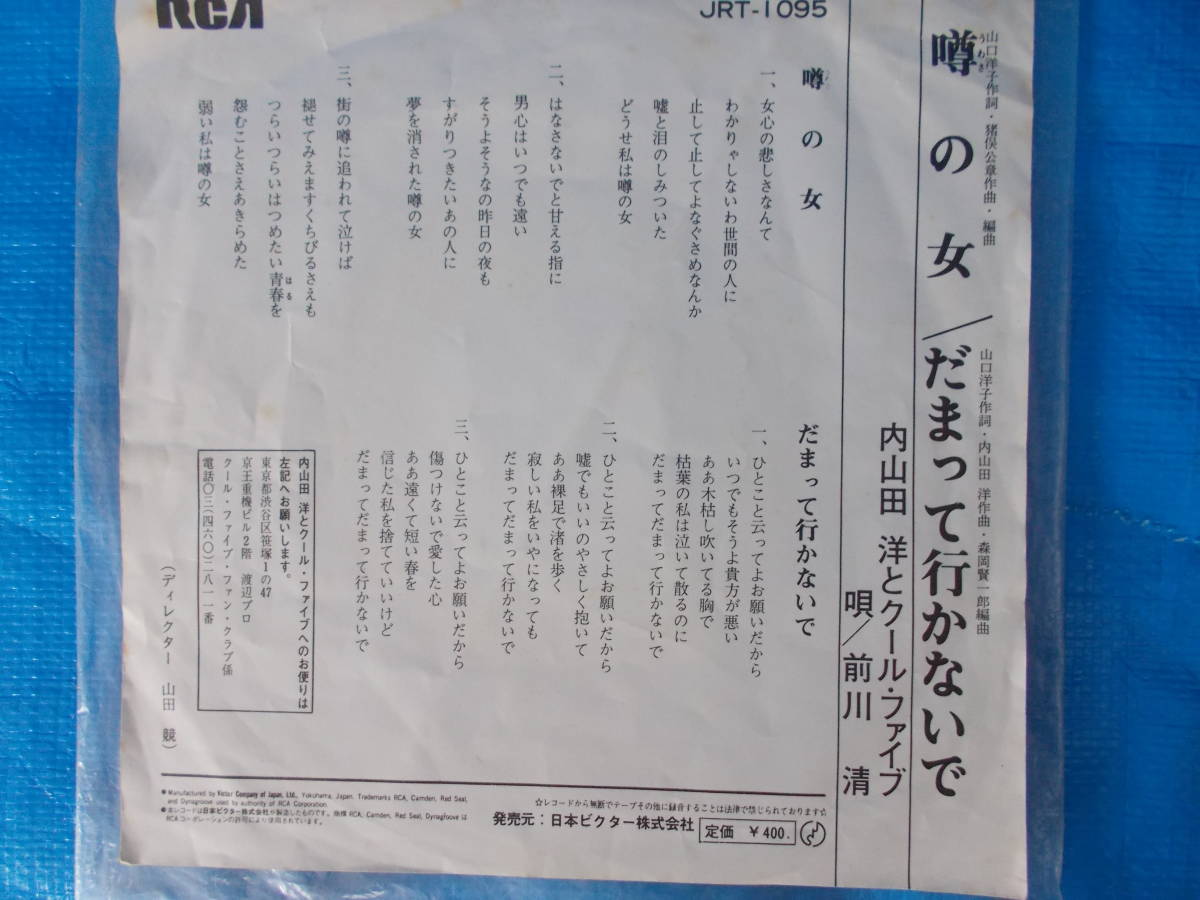 RCA
JRT-1095
山口洋子作詞・猪俣公章作曲・編曲
噂の女/だまって行かないで
うわさ
山口洋子作詞・内山田 洋作曲・森岡賢一郎編曲
内山田 洋とクール・ファイブ
唄/前川 清
噂の女
一、女心の悲しさなんて
わかりゃしないわ世間の人に
止して止してよなぐさめなんか
嘘と泪のしみついた
どうせ私は噂の女
二、はなさないでと甘える指に
男心はいつでも遠い
そうよそうなの昨日の夜も
すがりつきたいあの人に
夢を消された噂の女
三、街の噂に追われて泣けば
褪せてみえますくちびるさえも
つらいつらいはつめたい青春を
はる
怨むことさえあきらめた
弱い私は噂の女
だまって行かないで
一、ひとこと云ってよお願いだから
いつでもそうよ貴方が悪い
ああ木枯し吹いてる胸で
枯葉の私は泣いて散るのに
だまってだまって行かないで
二、ひとこと云ってよお願いだから
嘘でもいいのやさしく抱いて
ああ裸足で渚を歩く
寂しい私をいやになっても
だまってだまって行かないで
三、ひとこと云ってよお願いだから
傷つけないで愛した心
ああ遠くて短い春を
信じた私を捨てていいけど
だまってだまって行かないで
内山田 洋とクール・ファイブへのお便りは
左記へお願いします。
東京都渋谷区笹塚1の47
京王重機ビル2階 渡辺プロ
クール・ファイブ・ファン・クラブ係
電話〇三(四六〇)二八一一番
(ディレクター 山田 競)
●Manufactured by Victor Company of Japan, Ltd., Yokohama, Japan. Trademarks RCA, Camden, Red Seal,
and Dynagroove used by authority of RCA Corporation.
●本レコードは日本ビクター株式会社が製造したものです。商標 RCA, Camden, Red Seal, Dynagroove は
RCAコーポレーションの許可により使用されています。
☆レコードから無断でテープその他に録音することは法律で禁じられております☆
発売元:日本ビクター株式会社 定価 ¥400.